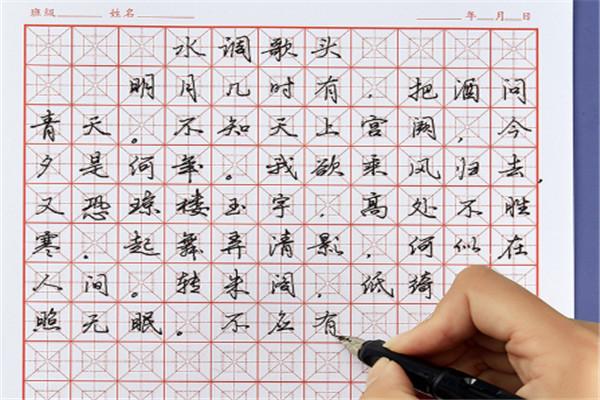 班级 姓名 年 月 日
水调歌头
明月几时有，把酒问
青天。不知天上宫阙，今
夕是何年。我欲乘风归去，
又恐琼楼玉宇，高处不胜
寒，起舞弄清影，何似在
人间。转朱阁，低绮
照无眠。不应有